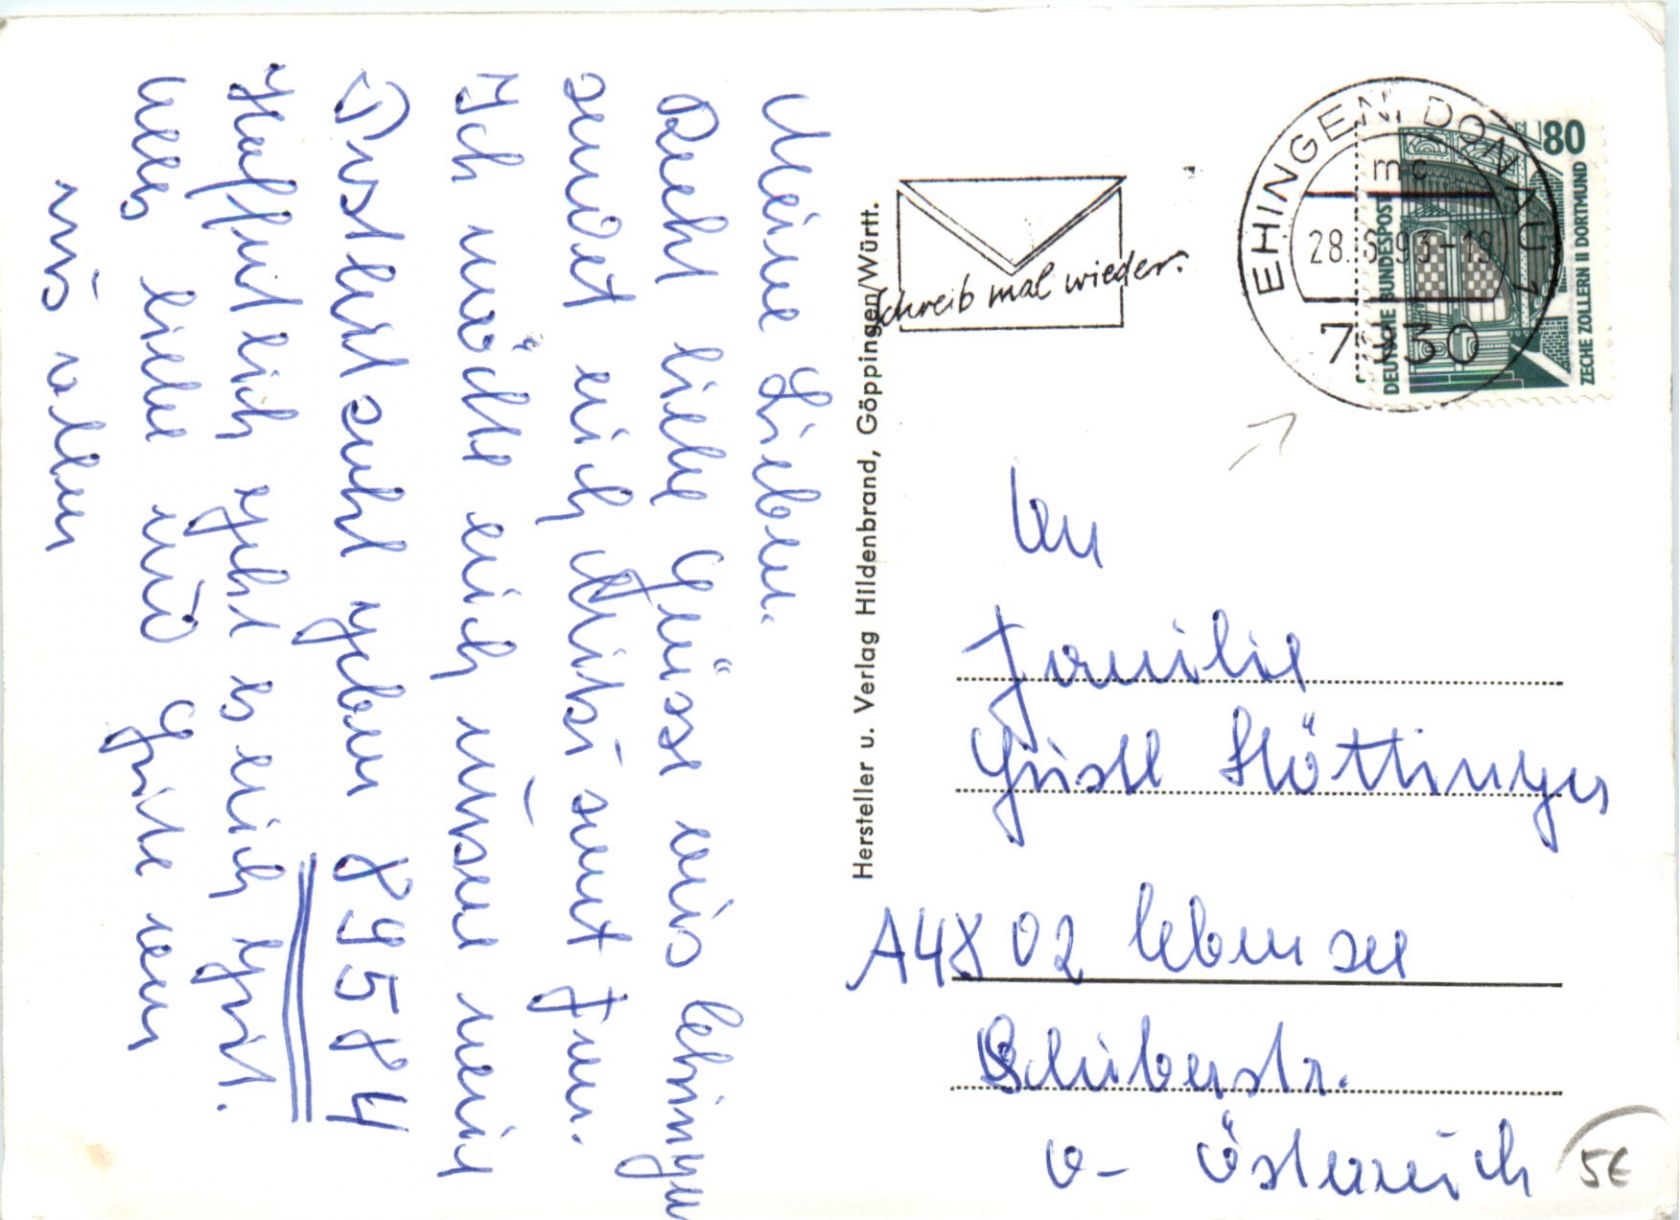 Meine Lieben.
Recht liebe Grüsse aus Ehingen
sendet euch
Ich möchte euch unsere neue
Postleitzahl geben 89584
Hoffentlich geht es euch gut.
Alles liebe und Gute
uns allen
Hersteller u. Verlag Hildenbrand, Göppingen/Württ.
Schreib mal wieder.
EHINGEN, DONAU 1
mc
28. 93-19
7930
80
DEUTSCHE BUNDESPOST
ZECHE ZOLLERN II DORTMUND
An
Familie
Stöttinger
A4802 Ebensee
O- Österreich
5€